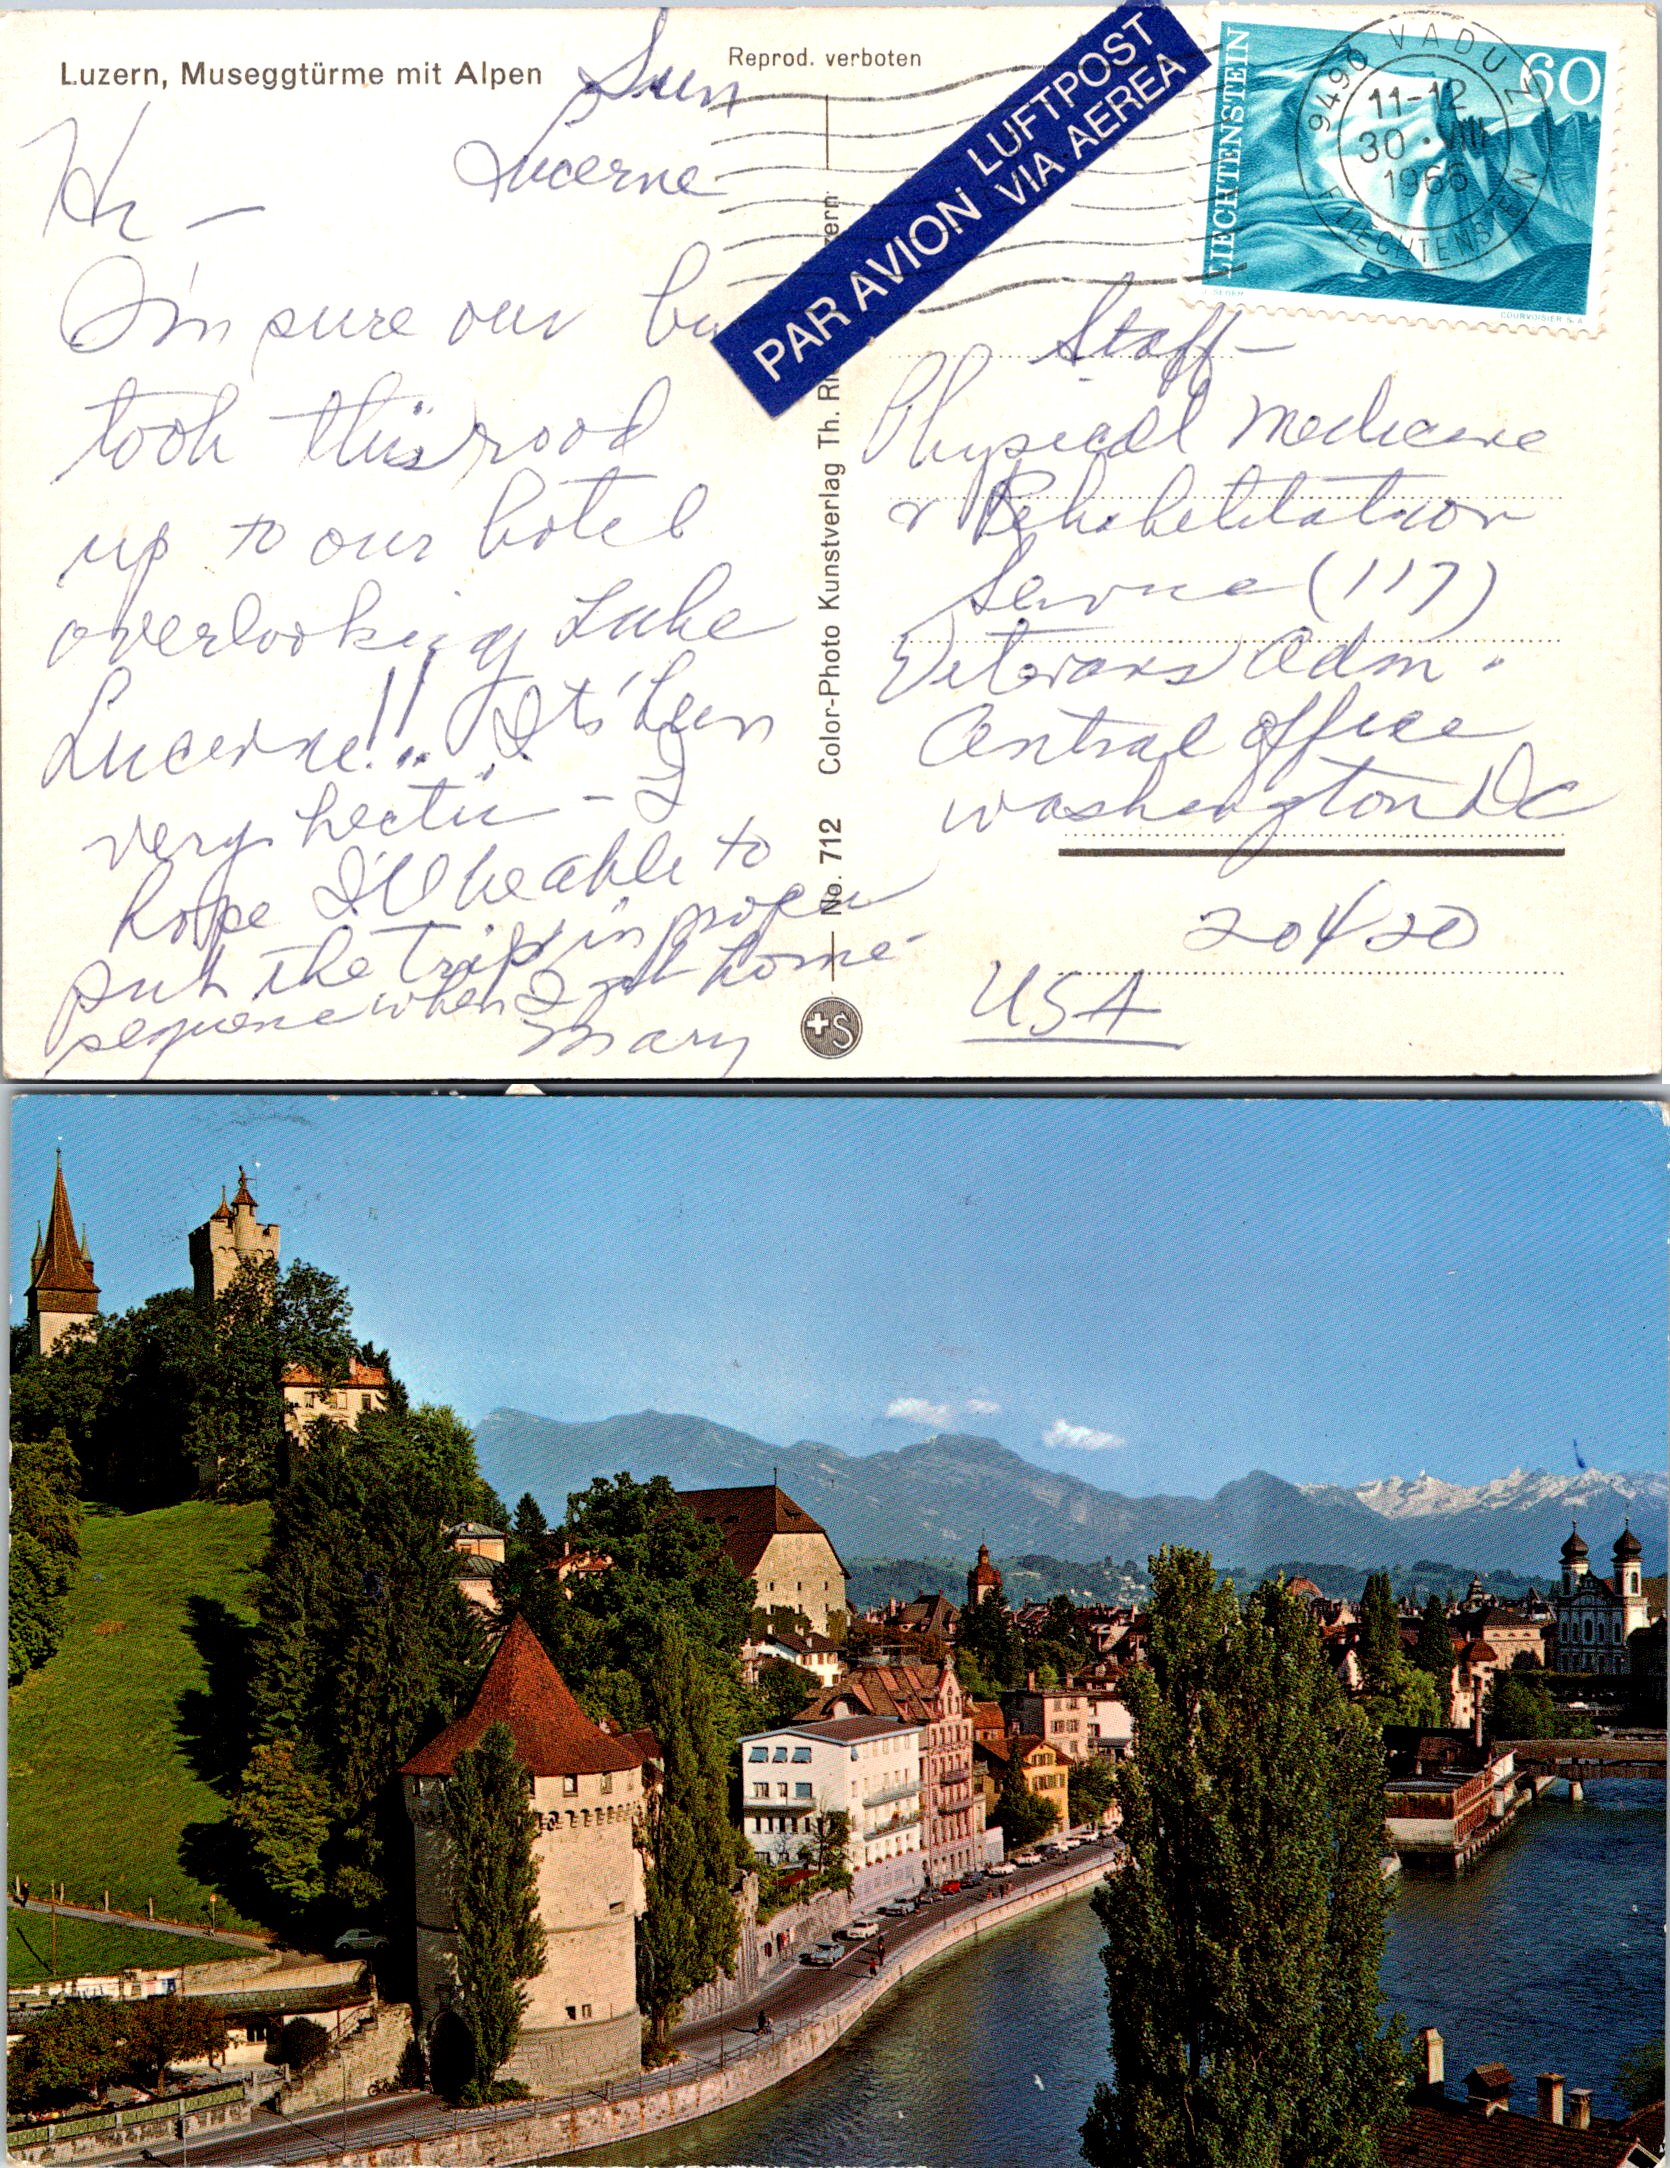 Luzern, Museggtürme mit Alpen
Reprod. verboten
Sun
Lucerne
Hi —
I'm sure our bu
took this road
up to our hotel
overlooking Lake
Lucerne!! It's been
very hectic - I
hope I'll be able to
put the trip in proper
sequence when I get home -
Mary
No. 712 Color-Photo Kunstverlag Th. Ri zern
+S
PAR AVION LUFTPOST
VIA AEREA
LIECHTENSTEIN
60
COURVOISIER S.A.
9490 VADUZ
11-12
30.VIII
1966
F. LIECHTENSTEIN
Staff —
Physical Medicine
& Rehabilitation
Service (117)
Veterans Adm.
Central Office
Washington DC
20420
USA